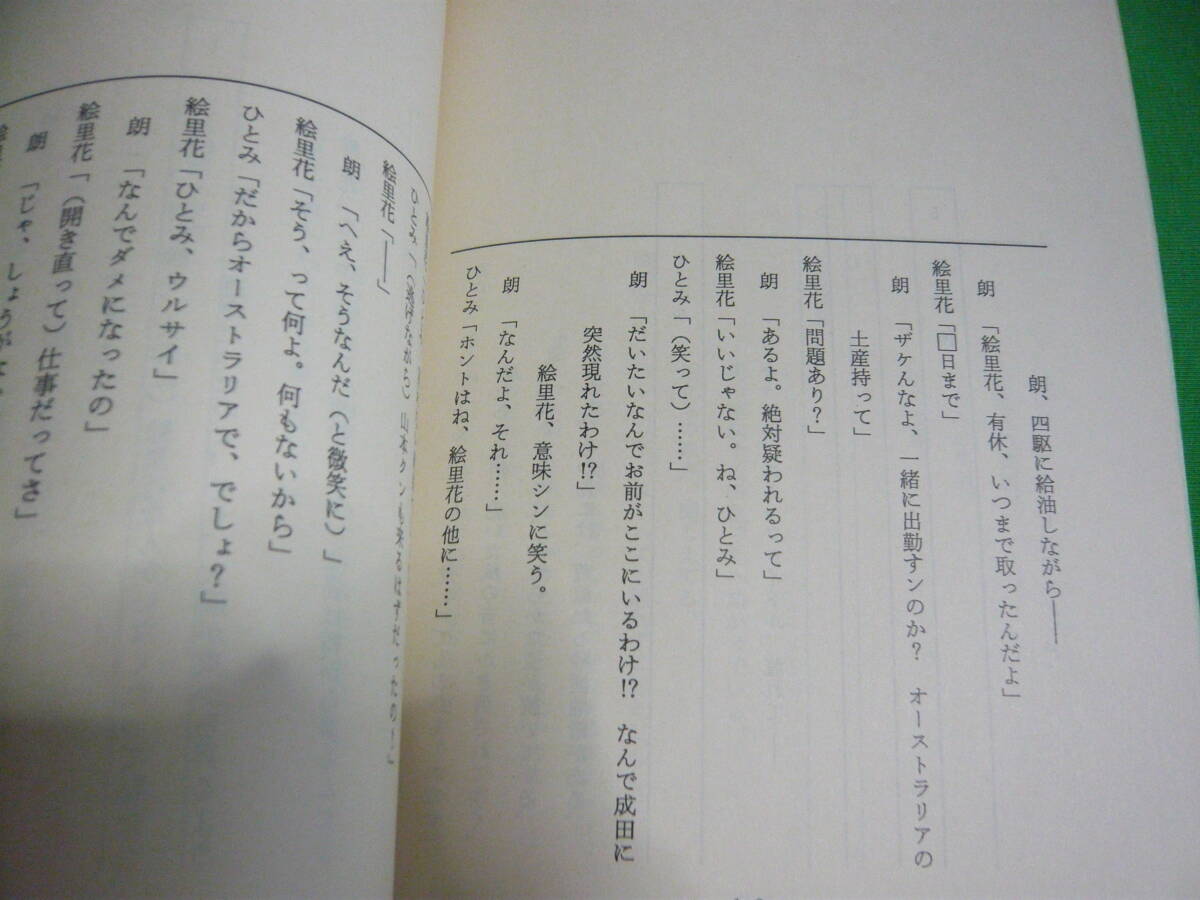 朗、四駆に給油しながら――
朗　「絵里花、有休、いつまで取ったんだよ」
絵里花「□□日まで」
朗　「ザケんなよ、一緒に出勤すンのか？　オーストラリアの
土産持って」
絵里花「問題あり？」
朗　「あるよ。絶対疑われるって」
絵里花「いいじゃない。ね、ひとみ」
ひとみ「（笑って）……」
朗　「だいたいなんでお前がここにいるわけ!?　なんで成田に
突然現れたわけ!?」
絵里花、意味シンに笑う。
朗　「なんだよ、それ……」
ひとみ「ホントはね、絵里花の他に……」
絵里花「――」
ひとみ「（逃げながら）山本クンも来るはずだったの！」
朗　「へえ、そうなんだ（と微笑に）」
絵里花「そう、って何よ。何もないから」
ひとみ「だからオーストラリアで、でしょ？」
絵里花「ひとみ、ウルサイ」
朗　「なんでダメになったの」
絵里花「（開き直って）仕事だってさ」
朗　「じゃ、しょうがな